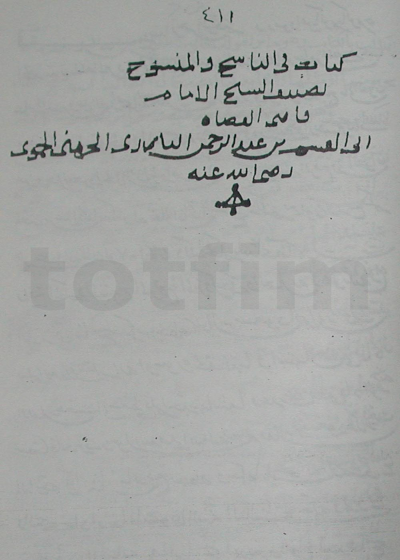 ٤١١
كتاب فى الناسخ والمنسوخ
تصنيف الشيخ الامام
قاضى القضاه
ابى القسم بن عبد الرحيم البارزى الجهنى الحموى
رضى الله عنه
totfim